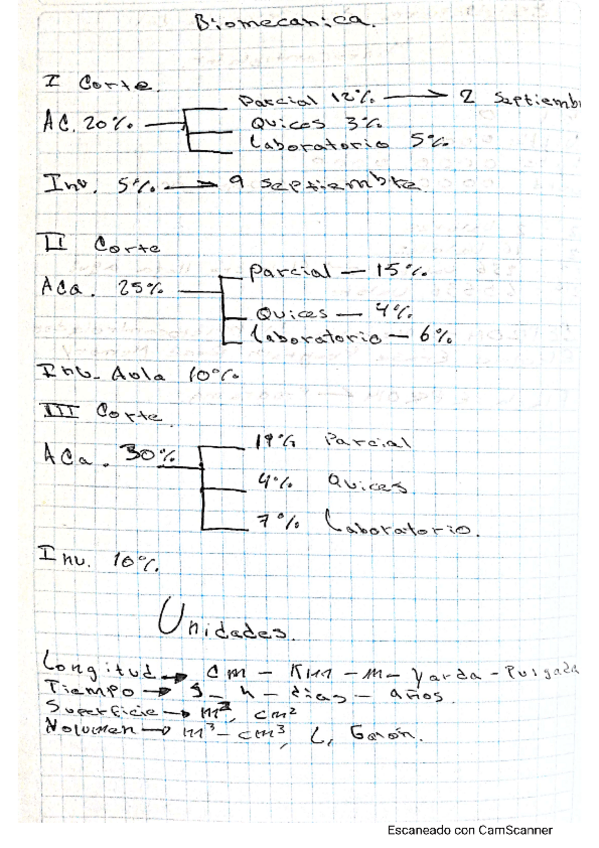 Biomecanica.
I Corte.
Parcial 12% → 2 Septiemb
AC. 20%
Quices 3%
Laboratorio 5%
Inv. 5% → 9 Septiembre
II Corte
Parcial — 15%
Aca. 25%
Quices — 4%
Laboratorio — 6%
Inv. Aula 10%
III Corte
19% Parcial
ACa. 30%
4% Quices
7% Laboratorio.
Inv. 10%
Unidades.
Longitud → cm - Km - m - Yarda - Pulgada
Tiempo → s - h - dias - años.
Superficie → m², cm²
Volumen → m³ - cm³, L, Galón.
Escaneado con CamScanner